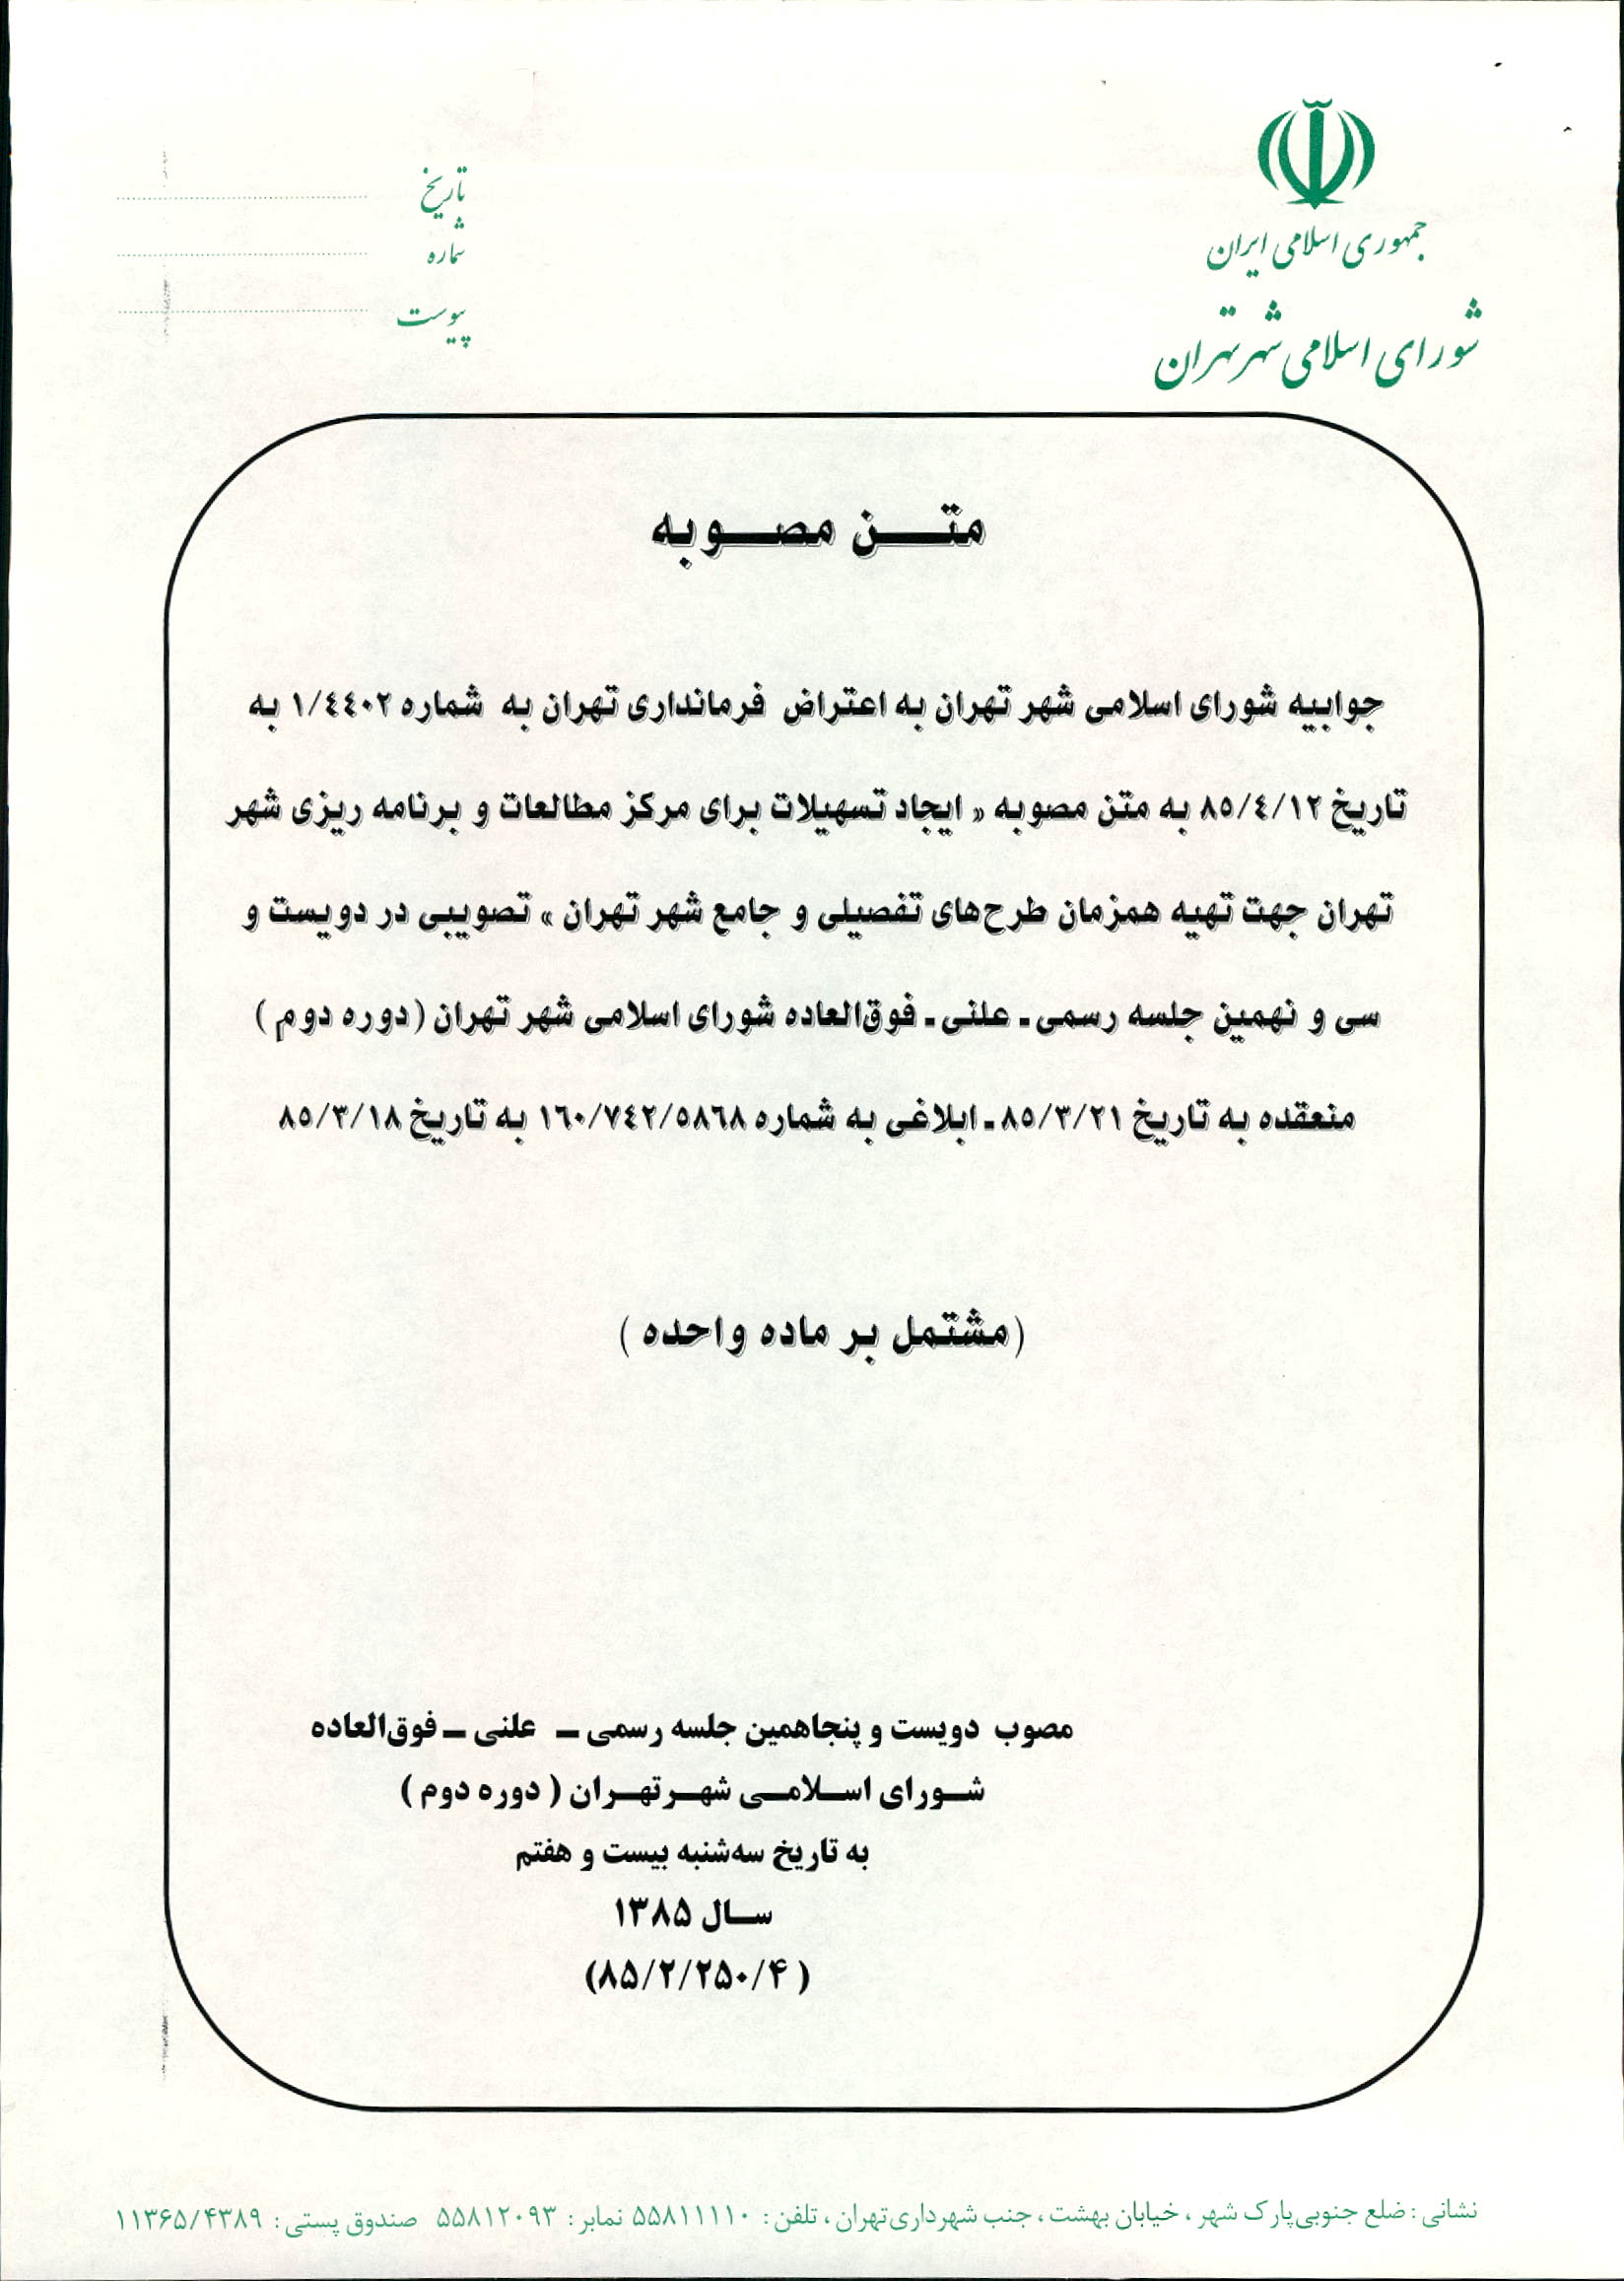 جمهوری اسلامی ایران
شورای اسلامی شهر تهران
تاریخ
شماره
پیوست
متن مصوبه
جوابیه شورای اسلامی شهر تهران به اعتراض فرمانداری تهران به شماره ۱/٤٤٠٢ به
تاریخ ۸٥/٤/۱۲ به متن مصوبه « ایجاد تسهیلات برای مرکز مطالعات و برنامه ریزی شهر
تهران جهت تهیه همزمان طرح‌های تفصیلی و جامع شهر تهران » تصویبی در دویست و
سی و نهمین جلسه رسمی ـ علنی ـ فوق‌العاده شورای اسلامی شهر تهران (دوره دوم )
منعقده به تاریخ ۸٥/۳/۲۱ ـ ابلاغی به شماره ۱٦۰/۷٤۲/٥۸٦۸ به تاریخ ۸٥/۳/۱۸
(مشتمل بر ماده واحده )
مصوب دویست و پنجاهمین جلسه رسمی ـ علنی ـ فوق‌العاده
شورای اسلامی شهر تهران ( دوره دوم )
به تاریخ سه‌شنبه بیست و هفتم
سال ۱۳۸۵
(۸۵/۲/۲۵۰/۴ )
نشانی : ضلع جنوبی پارک شهر ، خیابان بهشت ، جنب شهرداری تهران ، تلفن : ۵۵۸۱۱۱۱۰ نمابر : ۵۵۸۱۲۰۹۳ صندوق پستی : ۱۱۳۶۵/۴۳۸۹